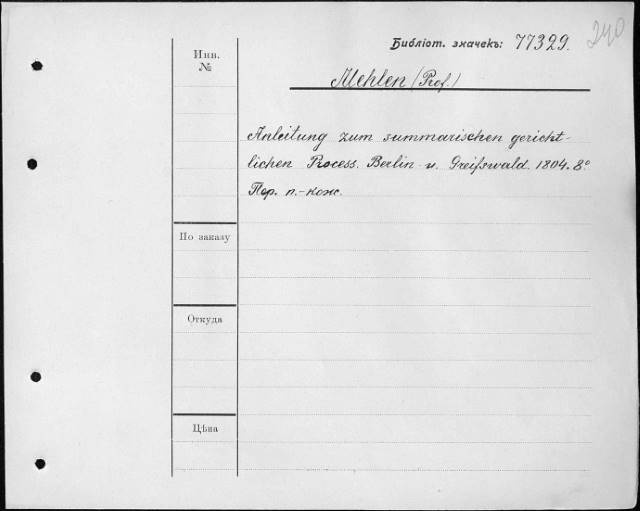 Библіот. значекъ: 77329.
240
Инв.
№
Mehlen (Prof.)
Anleitung zum summarischen gericht-
lichen Process. Berlin u. Greifswald. 1804. 8°
Пер. п.-кож.
По заказу
Откуда
Цѣна